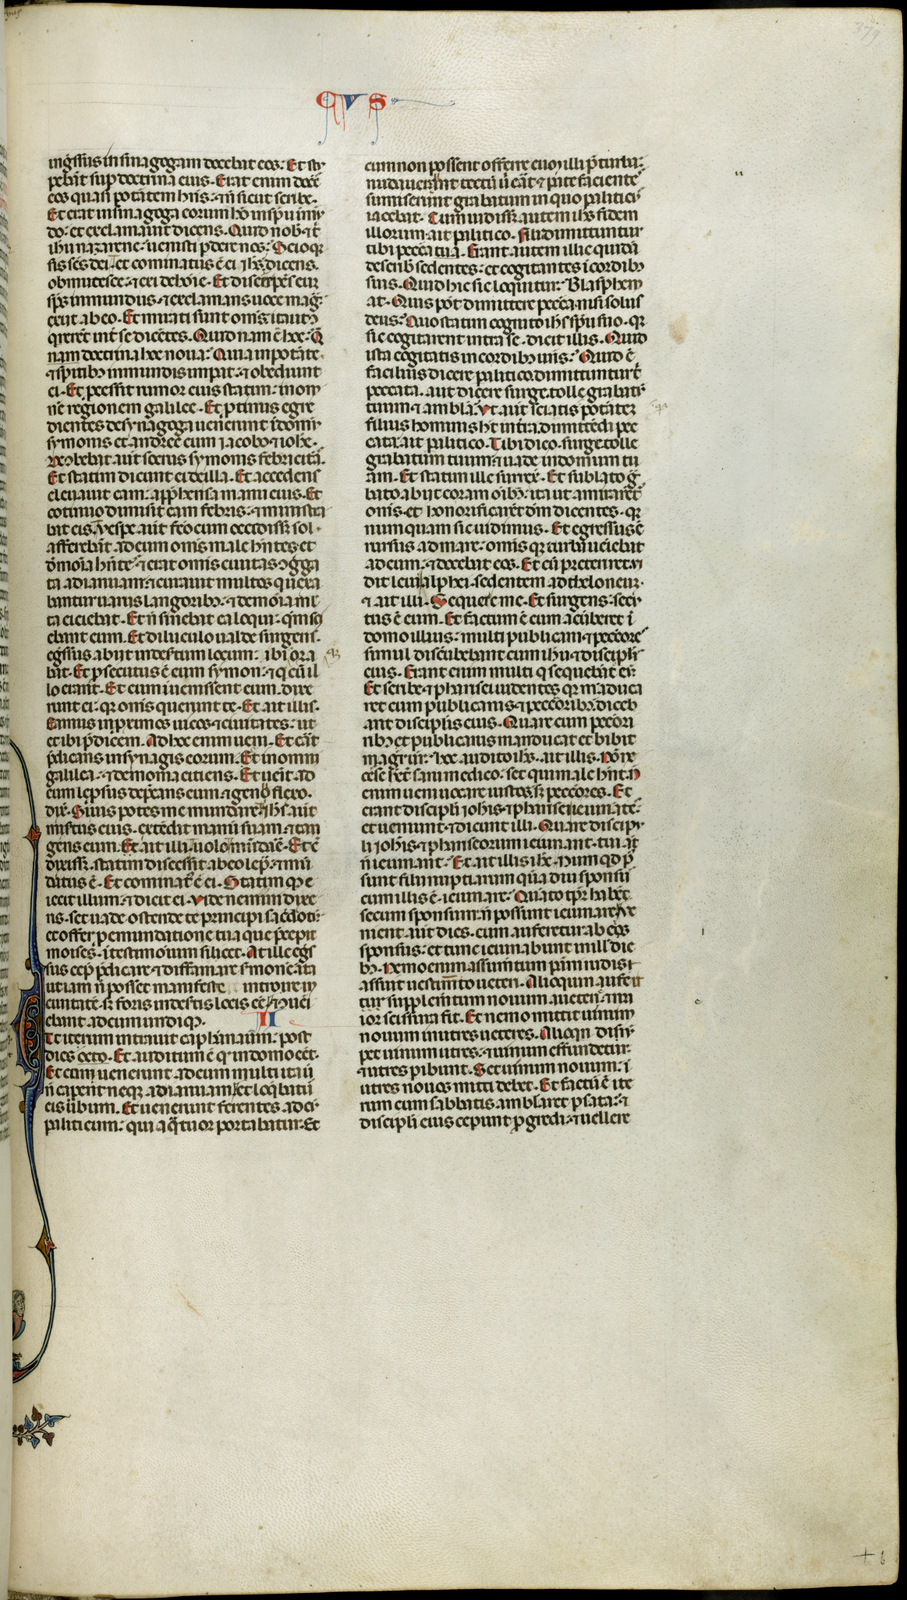 379
CVS
ingressus in sinagogam docebat eos. Et stu
pebant sup doctrina eius. Erat enim docens
eos quasi potatem hns. et n sicut scribe.
Et erat in sinagoga eorum ho in spu inmu
do. et exclamauit dicens. Quid nob et t
ihu nazarene. uenisti pdere nos. Scio qr
sis scs dei. et cominatus e ei ihs dicens.
obmutesce. et exi de hoie. Et discerpes eum
sps inmundus. et exclamans uoce mag
exiit ab eo. Et mirati sunt oms. ita ut
qreret int se dicetes. Quid nam e hoc. Q
nam doctrina hec noua. Quia in potate
et spiritibs inmundis impat. et obediunt
ei. Et pcessit rumor eius statim. in om
ne regionem galilee. Et ptinus egre
dientes de synagoga uenerunt i domu
symonis et andree cum iacobo et iohe.
Decubebat aut socrus symonis febricitas.
Et statim dicunt ei de illa. Et accedens
eleuauit eam. apphensa manu eius. Et
cotinuo dimisit eam febris. et ministra
bat eis. Vespe aut fco cum occidiss sol.
afferebat ad eum omis male hntes et
demoia hnte. et erat omis ciuitas cgga
ta ad ianuam. et curauit multos qui uexa
bantur uariis langoribs. et demoia ml
ta eiciebat. Et n sinebat ea loqui. qm sci
ebant eum. Et diluculo ualde surgens.
egssus abiit in destum locum. ibi ora
bat. Et psecutus e eum symon. et q cu il
lo erant. Et cum inuenissent eum. dixe
runt ei. qr omis querunt te. Et ait illis.
Eamus in pximos uicos et ciuitates. ut
et ibi pdicem. Ad hoc enim ueni. Et erat
pdicans in synagogis eorum. Et in omni
galilea. et demonia eiciens. Et uenit ad
eum lepsus depcans eum. et genu flexo.
dix. Si uis potes me mundare. ihs aut
misertus eius. extedit manu suam. et tan
gens eum. Et ait illi. uolo mudare. Et c
dixisset. statim discessit ab eo lepra. et mu
datus e. Et cominat e ei. Statim qe e
iecit illum. et dicit ei. Vide nemini dixe
ris. set uade ostende te principi sacdotu.
et offer p emundatione tua que pcepit
moises. i testimonium illis. At ille egs
sus cep pdicare. et diffamare smone. ita
ut iam n posset manifeste introire in
ciuitate. s foris in destis locis ee. et coueni
ebant ad eum undiq. II
Et iterum intrauit caphnaum. post
dies octo. Et auditum e q in domo eet.
Et cum uenerunt ad eum multi ita ut
n caperet neq ad ianuam. et loqbatur
eis uerbum. Et uenerunt ferentes ad eu
paliticum. qui a qtuor portabatur. Et
cum non possent offerre eum illi p turba.
nudauerunt tectu ubi erat. et patefaciente
sumiserunt grabatum in quo paliticus
iacebat. Cum uidiss autem ihs fidem
illorum. ait palitico. Fili dimittuntur
tibi peccata tua. Erant autem illic quida
de scribis sedentes. et cogitantes i cordibs
suis. Quid hic sic loquitur. Blasphem
at. Quis pot dimittere peccata nisi solus
deus. Quo statim cognito ihs spu suo. qr
sic cogitarent intra se. dicit illis. Quid
ista cogitatis in cordibus uris. Quid e
facilius dicere palitico. dimittuntur t
peccata. aut dicere surge. tolle grabatu
tuum. et ambla. Vt aut sciatis potatez
filius hominis ht in tra dimittedi pec
cata. ait palitico. Tibi dico. surge tolle
grabatum tuum. et uade in domum tu
am. Et statim ille surrex. Et sublato g
bato abiit coram oibs. ita ut amirarent
omis. et honorificaret dm dicentes. qr
numquam sic uidimus. Et egressus e
rursus ad mare. omis qr turba ueniebat
ad eum. et docebat eos. Et cu preteriret. ui
dit leui alphei. sedentem ad theloneu.
et ait illi. Sequere me. Et surgens. secu
tus e eum. Et factum e cum acubere i
domo illius. multi publicani et peccores
simul discubebant cum ihu et discipli
eius. Erant enim multi q sequebat eu.
Et scribe et pharisei uidentes qr maduca
ret cum publicanis. et peccoribs. diceb
ant disciplis eius. Quare cum peccori
bs et publicanis manducat et bibit
magr ur. Hoc audito ihs. ait illis. Non ne
cesse hent sani medico. set qui male hnt. N
enim ueni uocare iustos. s peccores. Et
erant discipli iohis. et pharisei ieiunates.
et ueniunt. et dicunt illi. Quare discipu
li iohis. et phariseorum ieiunant. tui aut
n ieiunant. Et ait illis ihs. Num qd p
sunt filii nuptiarum qua diu sponsus
cum illis e. ieiunare. Quato tpr habet
secum sponsum. n possunt ieiunare. Ve
nient aut dies. cum auferetur ab eis
sponsus. et tunc ieiunabunt in illis die
bs. Nemo enim assumtum panni rudis
assuit uestimto ueteri. Alioquin aufert
tur supplemtum nouum a ueteri. et ma
ior scissura fit. Et nemo mittit uinum
nouum in utres ueteres. Alioqn disru
pet uinum utres. et uinum effundetur.
et utres pibunt. Set uinum nouum. i
utres nouos mitti debet. Et factu e ite
rum cum sabbatis amblaret p sata. et
discipli eius ceperunt pgredi. et uellere
+ 6